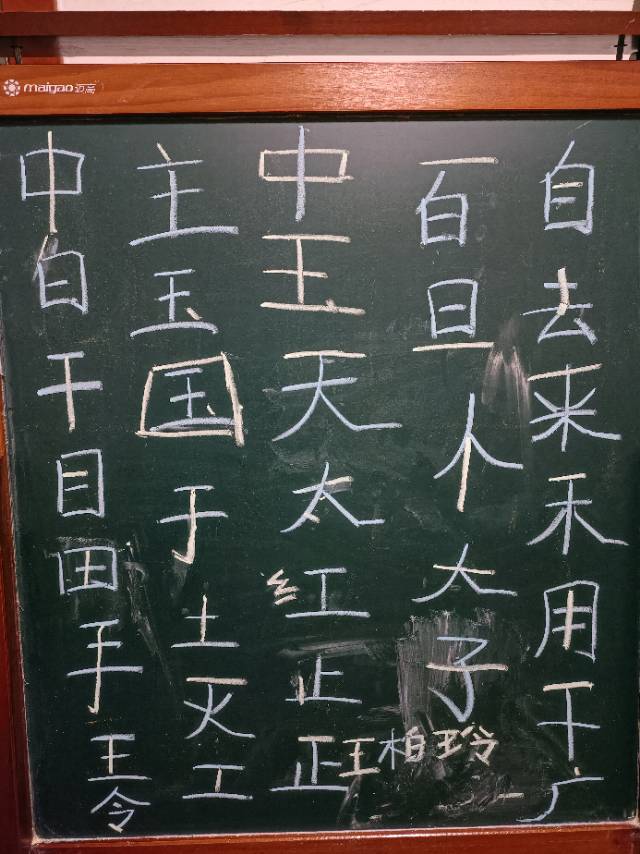 maigao迈高
中白干目田手王令
主玉国于土灭工
中王天太红止正
百旦个大子
自去来禾用干广
王柏玲